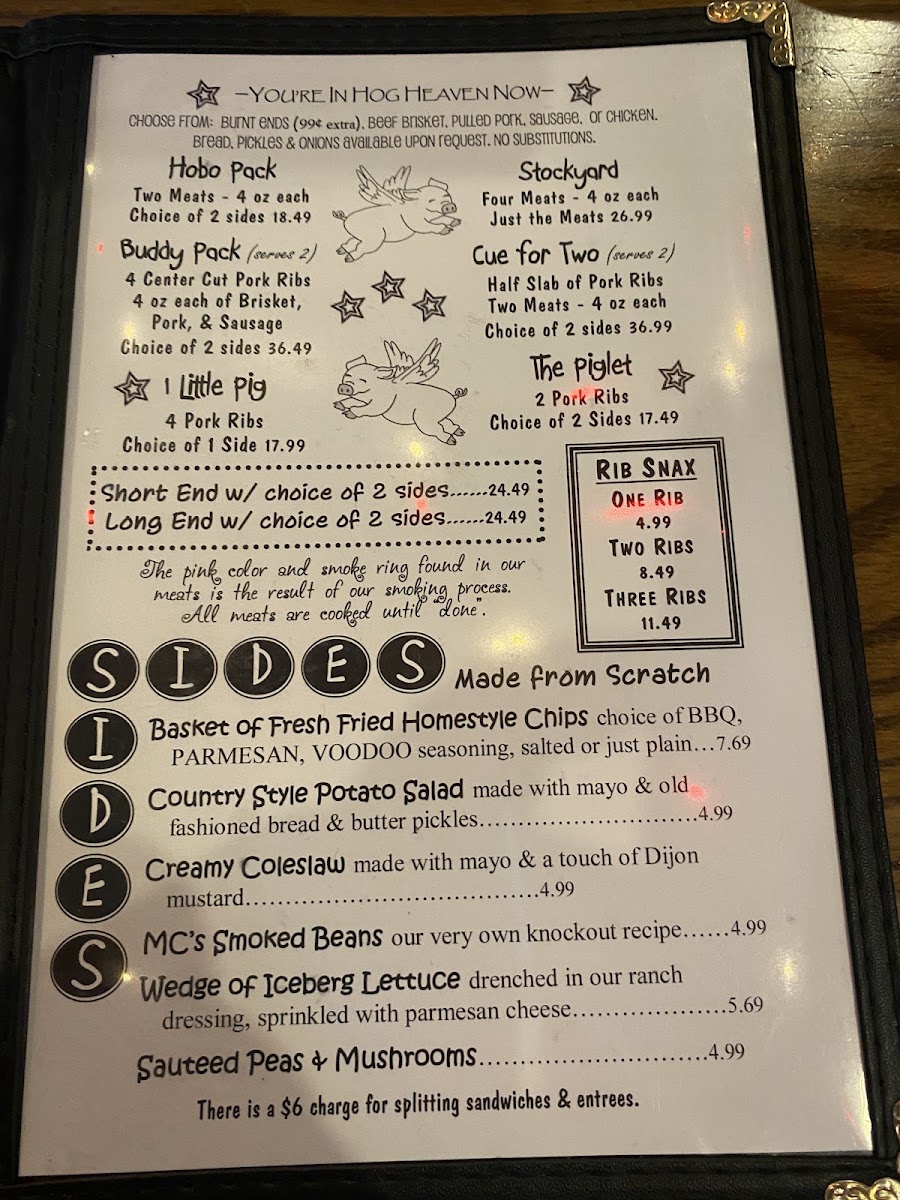 -You're In Hog Heaven Now-
Choose from: Burnt Ends (99¢ extra), Beef Brisket, Pulled Pork, Sausage, or Chicken.
Bread, Pickles & Onions available upon request. No substitutions.
Hobo Pack
Two Meats - 4 oz each
Choice of 2 sides 18.49
Stockyard
Four Meats - 4 oz each
Just the Meats 26.99
Buddy Pack (serves 2)
4 Center Cut Pork Ribs
4 oz each of Brisket,
Pork, & Sausage
Choice of 2 sides 36.49
Cue for Two (serves 2)
Half Slab of Pork Ribs
Two Meats - 4 oz each
Choice of 2 sides 36.99
1 Little Pig
4 Pork Ribs
Choice of 1 Side 17.99
The Piglet
2 Pork Ribs
Choice of 2 Sides 17.49
Short End w/ choice of 2 sides......24.49
Long End w/ choice of 2 sides......24.49
Rib Snax
One Rib
4.99
Two Ribs
8.49
Three Ribs
11.49
The pink color and smoke ring found in our
meats is the result of our smoking process.
All meats are cooked until "done".
SIDES Made from Scratch
I
D
E
S
Basket of Fresh Fried Homestyle Chips choice of BBQ,
PARMESAN, VOODOO seasoning, salted or just plain...7.69
Country Style Potato Salad made with mayo & old
fashioned bread & butter pickles............................4.99
Creamy Coleslaw made with mayo & a touch of Dijon
mustard......................................4.99
MC's Smoked Beans our very own knockout recipe......4.99
Wedge of Iceberg Lettuce drenched in our ranch
dressing, sprinkled with parmesan cheese....................5.69
Sauteed Peas & Mushrooms.............................4.99
There is a $6 charge for splitting sandwiches & entrees.